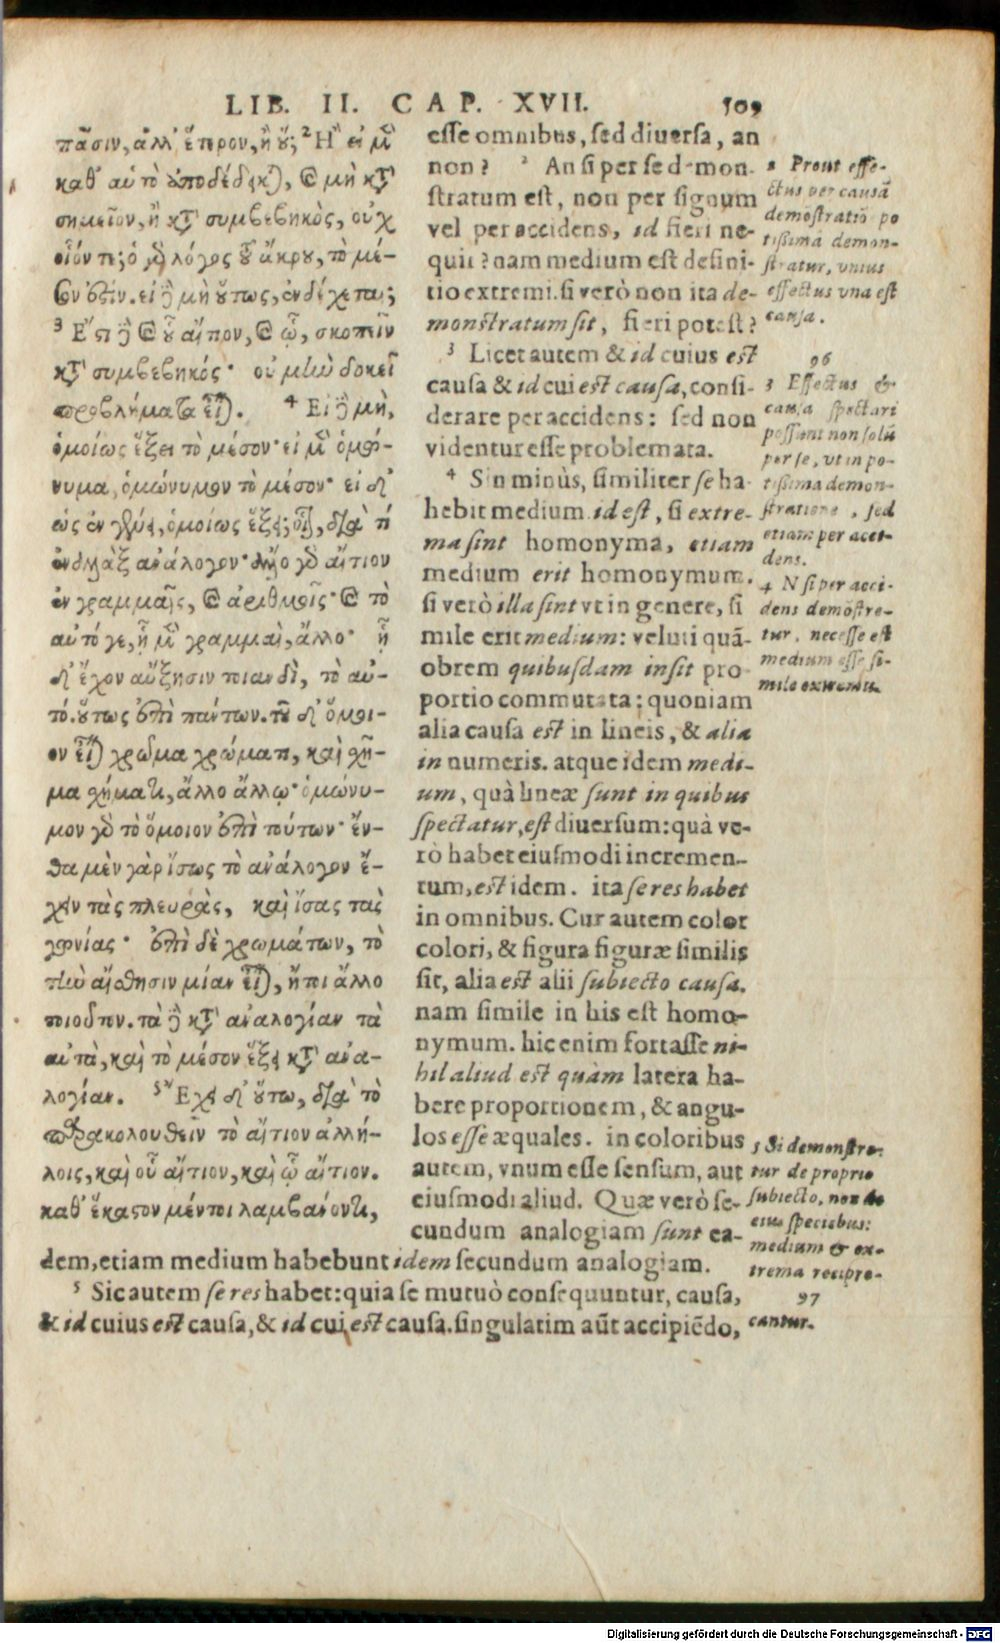 LIB. II. CAP. XVII. 509
πᾶσιν, ἀλλ' ἕτερον, ἢ οὔ; ²Ἢ εἰ μὲν
καθ' αὑτὸ ἀποδέδεικται, καὶ μὴ κατὰ
σημεῖον, ἢ κατὰ συμβεβηκὸς, οὐχ
οἷόν τε; ὁ γὰρ λόγος τοῦ ἄκρου, τὸ μέ-
σον ἐστίν. εἰ δὲ μὴ οὕτως, ἐνδέχεται;
³ Ἔστι δὲ καὶ οὗ αἴτιον, καὶ ᾧ, σκοπεῖν
κατὰ συμβεβηκός· οὐ μὴν δοκεῖ
προβλήματα εἶναι. ⁴ Εἰ δὲ μὴ,
ὁμοίως ἕξει τὸ μέσον· εἰ μὲν ὁμώ-
νυμα, ὁμώνυμον τὸ μέσον· εἰ δ'
ὡς ἐν γένει, ὁμοίως ἕξει; οἷον, διὰ τί
ἐναλλὰξ ἀνάλογον· ἄλλο γὰρ αἴτιον
ἐν γραμμαῖς, καὶ ἀριθμοῖς· καὶ τὸ
αὐτό γε, ᾗ μὲν γραμμαὶ, ἄλλο· ᾗ
δ' ἔχον αὔξησιν τοιανδὶ, τὸ αὐ-
τό. οὕτως ἐπὶ πάντων. τοῦ δ' ὅμοι-
ον εἶναι χρῶμα χρώματι, καὶ σχῆ-
μα σχήματι, ἄλλο ἄλλῳ· ὁμώνυ-
μον γὰρ τὸ ὅμοιον ἐπὶ τούτων· ἔν-
θα μὲν γὰρ ἴσως τὸ ἀνάλογον ἔ-
χειν τὰς πλευρὰς, καὶ ἴσας τὰς
γωνίας· ἐπὶ δὲ χρωμάτων, τὸ
τὴν αἴσθησιν μίαν εἶναι, ἤ τι ἄλλο
τοιοῦτον. τὰ δὲ κατ' ἀναλογίαν τὰ
αὐτὰ, καὶ τὸ μέσον ἕξει κατ' ἀνα-
λογίαν. ⁵Ἔχει δ' οὕτω, διὰ τὸ
παρακολουθεῖν τὸ αἴτιον ἀλλή-
λοις, καὶ οὗ αἴτιον, καὶ ᾧ αἴτιον.
καθ' ἕκαστον μέντοι λαμβάνοντι,
esse omnibus, sed diuersa, an
non? ² An si per se demon-
stratum est, non per signum
vel per accidens, id fieri ne-
quit? nam medium est defini-
tio extremi. si verò non ita de-
monstratum sit, fieri potest?
³ Licet autem & id cuius est
causa & id cui est causa, consi-
derare per accidens: sed non
videntur esse problemata.
⁴ Sin minùs, similiter se ha-
bebit medium. id est, si extre-
ma sint homonyma, etiam
medium erit homonymum.
si verò illa sint vt in genere, si
mile erit medium: veluti quā-
obrem quibusdam insit pro
portio commutata: quoniam
alia causa est in lineis, & alia
in numeris. atque idem medi-
um, quà lineæ sunt in quibus
spectatur, est diuersum: quà ve-
rò habet eiusmodi incremen-
tum, est idem. ita se res habet
in omnibus. Cur autem color
colori, & figura figuræ similis
sit, alia est alii subiecto causa.
nam simile in his est homo-
nymum. hic enim fortasse ni-
hil aliud est quàm latera ha-
bere proportionem, & angu-
los esse æquales. in coloribus
autem, vnum esse sensum, aut
eiusmodi aliud. Quæ verò se-
cundum analogiam sunt ea-
dem, etiam medium habebunt idem secundum analogiam.
⁵ Sic autem se res habet: quia se mutuò consequuntur, causa,
& id cuius est causa, & id cui est causa. singulatim aūt accipiēdo,
2 Prout effe-
ctus per causā
demōstratiō po
tissima demon-
stratur, vnius
effectus vna est
causa.
96
3 Effectus &
causa spectari
possunt non solū
per se, vt in po-
tissima demon-
stratione, sed
etiam per acci-
dens.
4 N si per acci-
dens demōstre-
tur, necesse est
medium esse si-
mile extremis.
5 Si demonstre-
tur de proprio
subiecto, non de
eius speciebus:
medium & ex-
trema recipro-
97
cantur.
Digitalisierung gefördert durch die Deutsche Forschungsgemeinschaft - DFG